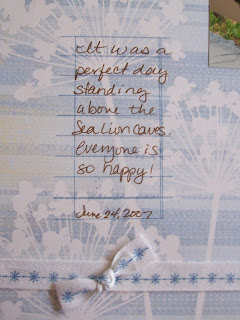 It was a
perfect day
standing
above the
Sea Lion caves,
everyone is
so happy!
June 24, 2007